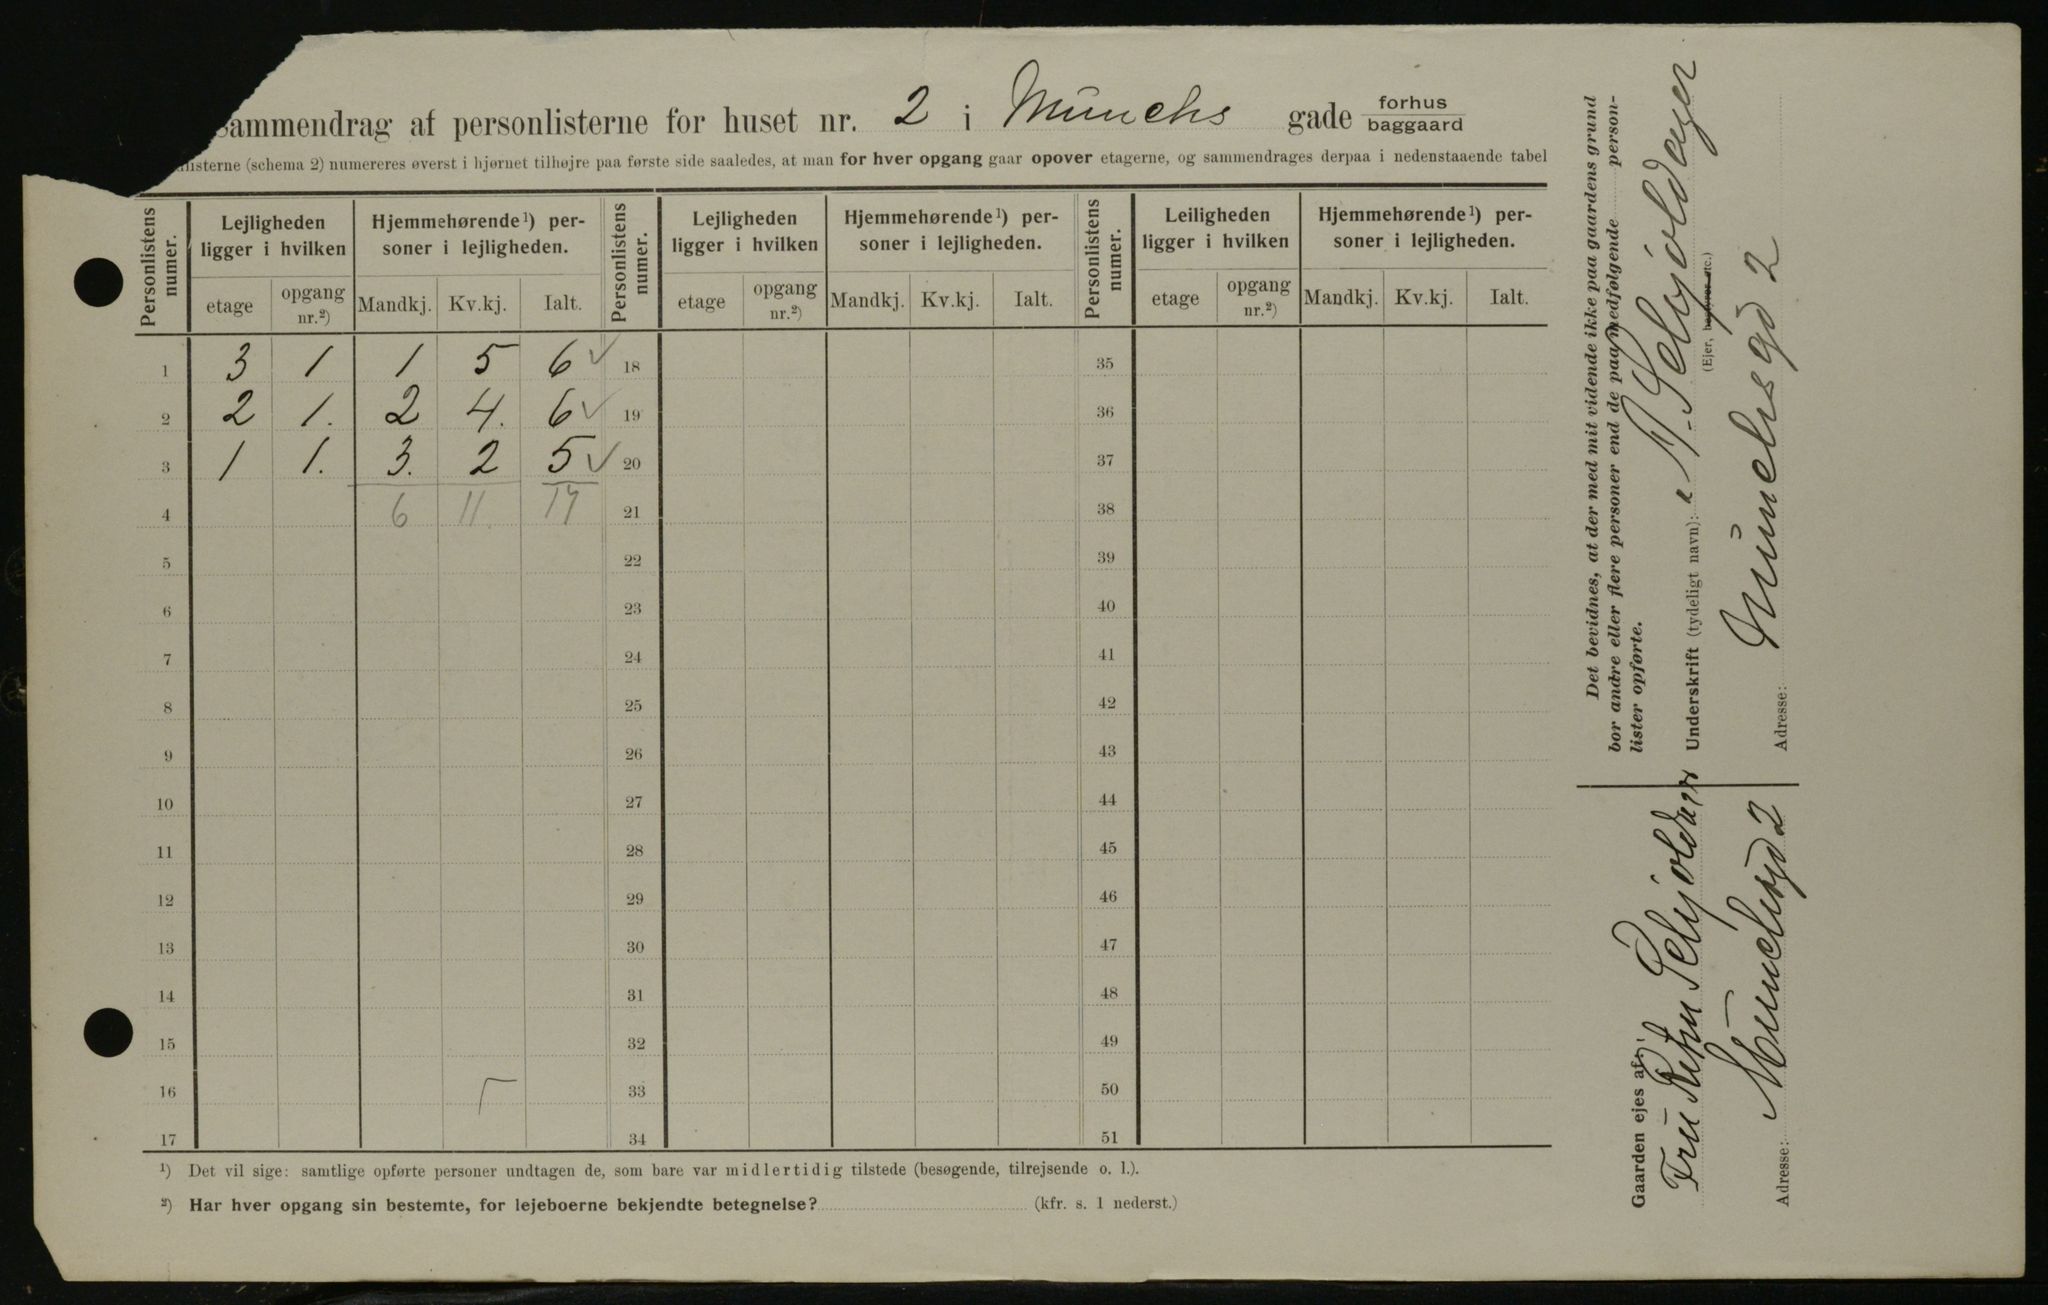 Sammendrag af personlisterne for huset nr. 2 i Munchs gade forhus
baggaard
listerne (schema 2) numereres øverst i hjørnet tilhøjre paa første side saaledes, at man for hver opgang gaar opover etagerne, og sammendrages derpaa i nedenstaaende tabel
Personlistens numer. Lejligheden ligger i hvilken Hjemmehørende¹) personer i lejligheden. Personlistens numer. Lejligheden ligger i hvilken Hjemmehørende¹) personer i lejligheden. Personlistens numer. Leiligheden ligger i hvilken Hjemmehørende¹) personer i lejligheden.
etage opgang nr.²) Mandkj. Kv.kj. Ialt. etage opgang nr.²) Mandkj. Kv.kj. Ialt. etage opgang nr.²) Mandkj. Kv.kj. Ialt.
1 3 1 1 5 6 ✓ 18 35
2 2 1. 2 4. 6 ✓ 19 36
3 1 1. 3. 2 5 ✓ 20 37
4 6 11. 17 21 38
5 22 39
6 23 40
7 24 41
8 25 42
9 26 43
10 27 44
11 28 45
12 29 46
13 30 47
14 31 48
15 32 49
16 33 50
17 34 51
¹) Det vil sige: samtlige opførte personer undtagen de, som bare var midlertidig tilstede (besøgende, tilrejsende o. l.).
²) Har hver opgang sin bestemte, for lejeboerne bekjendte betegnelse? (kfr. s. 1 nederst.)
Det bevidnes, at der med mit vidende ikke paa gaardens grund
bor andre eller flere personer end de paa medfølgende person-
lister opførte.
Underskrift (tydeligt navn):
(Ejer, bestyrer etc.)
Adresse: Munchsgd 2
Gaarden ejes af:
Fru
Adresse: Munchsgd 2